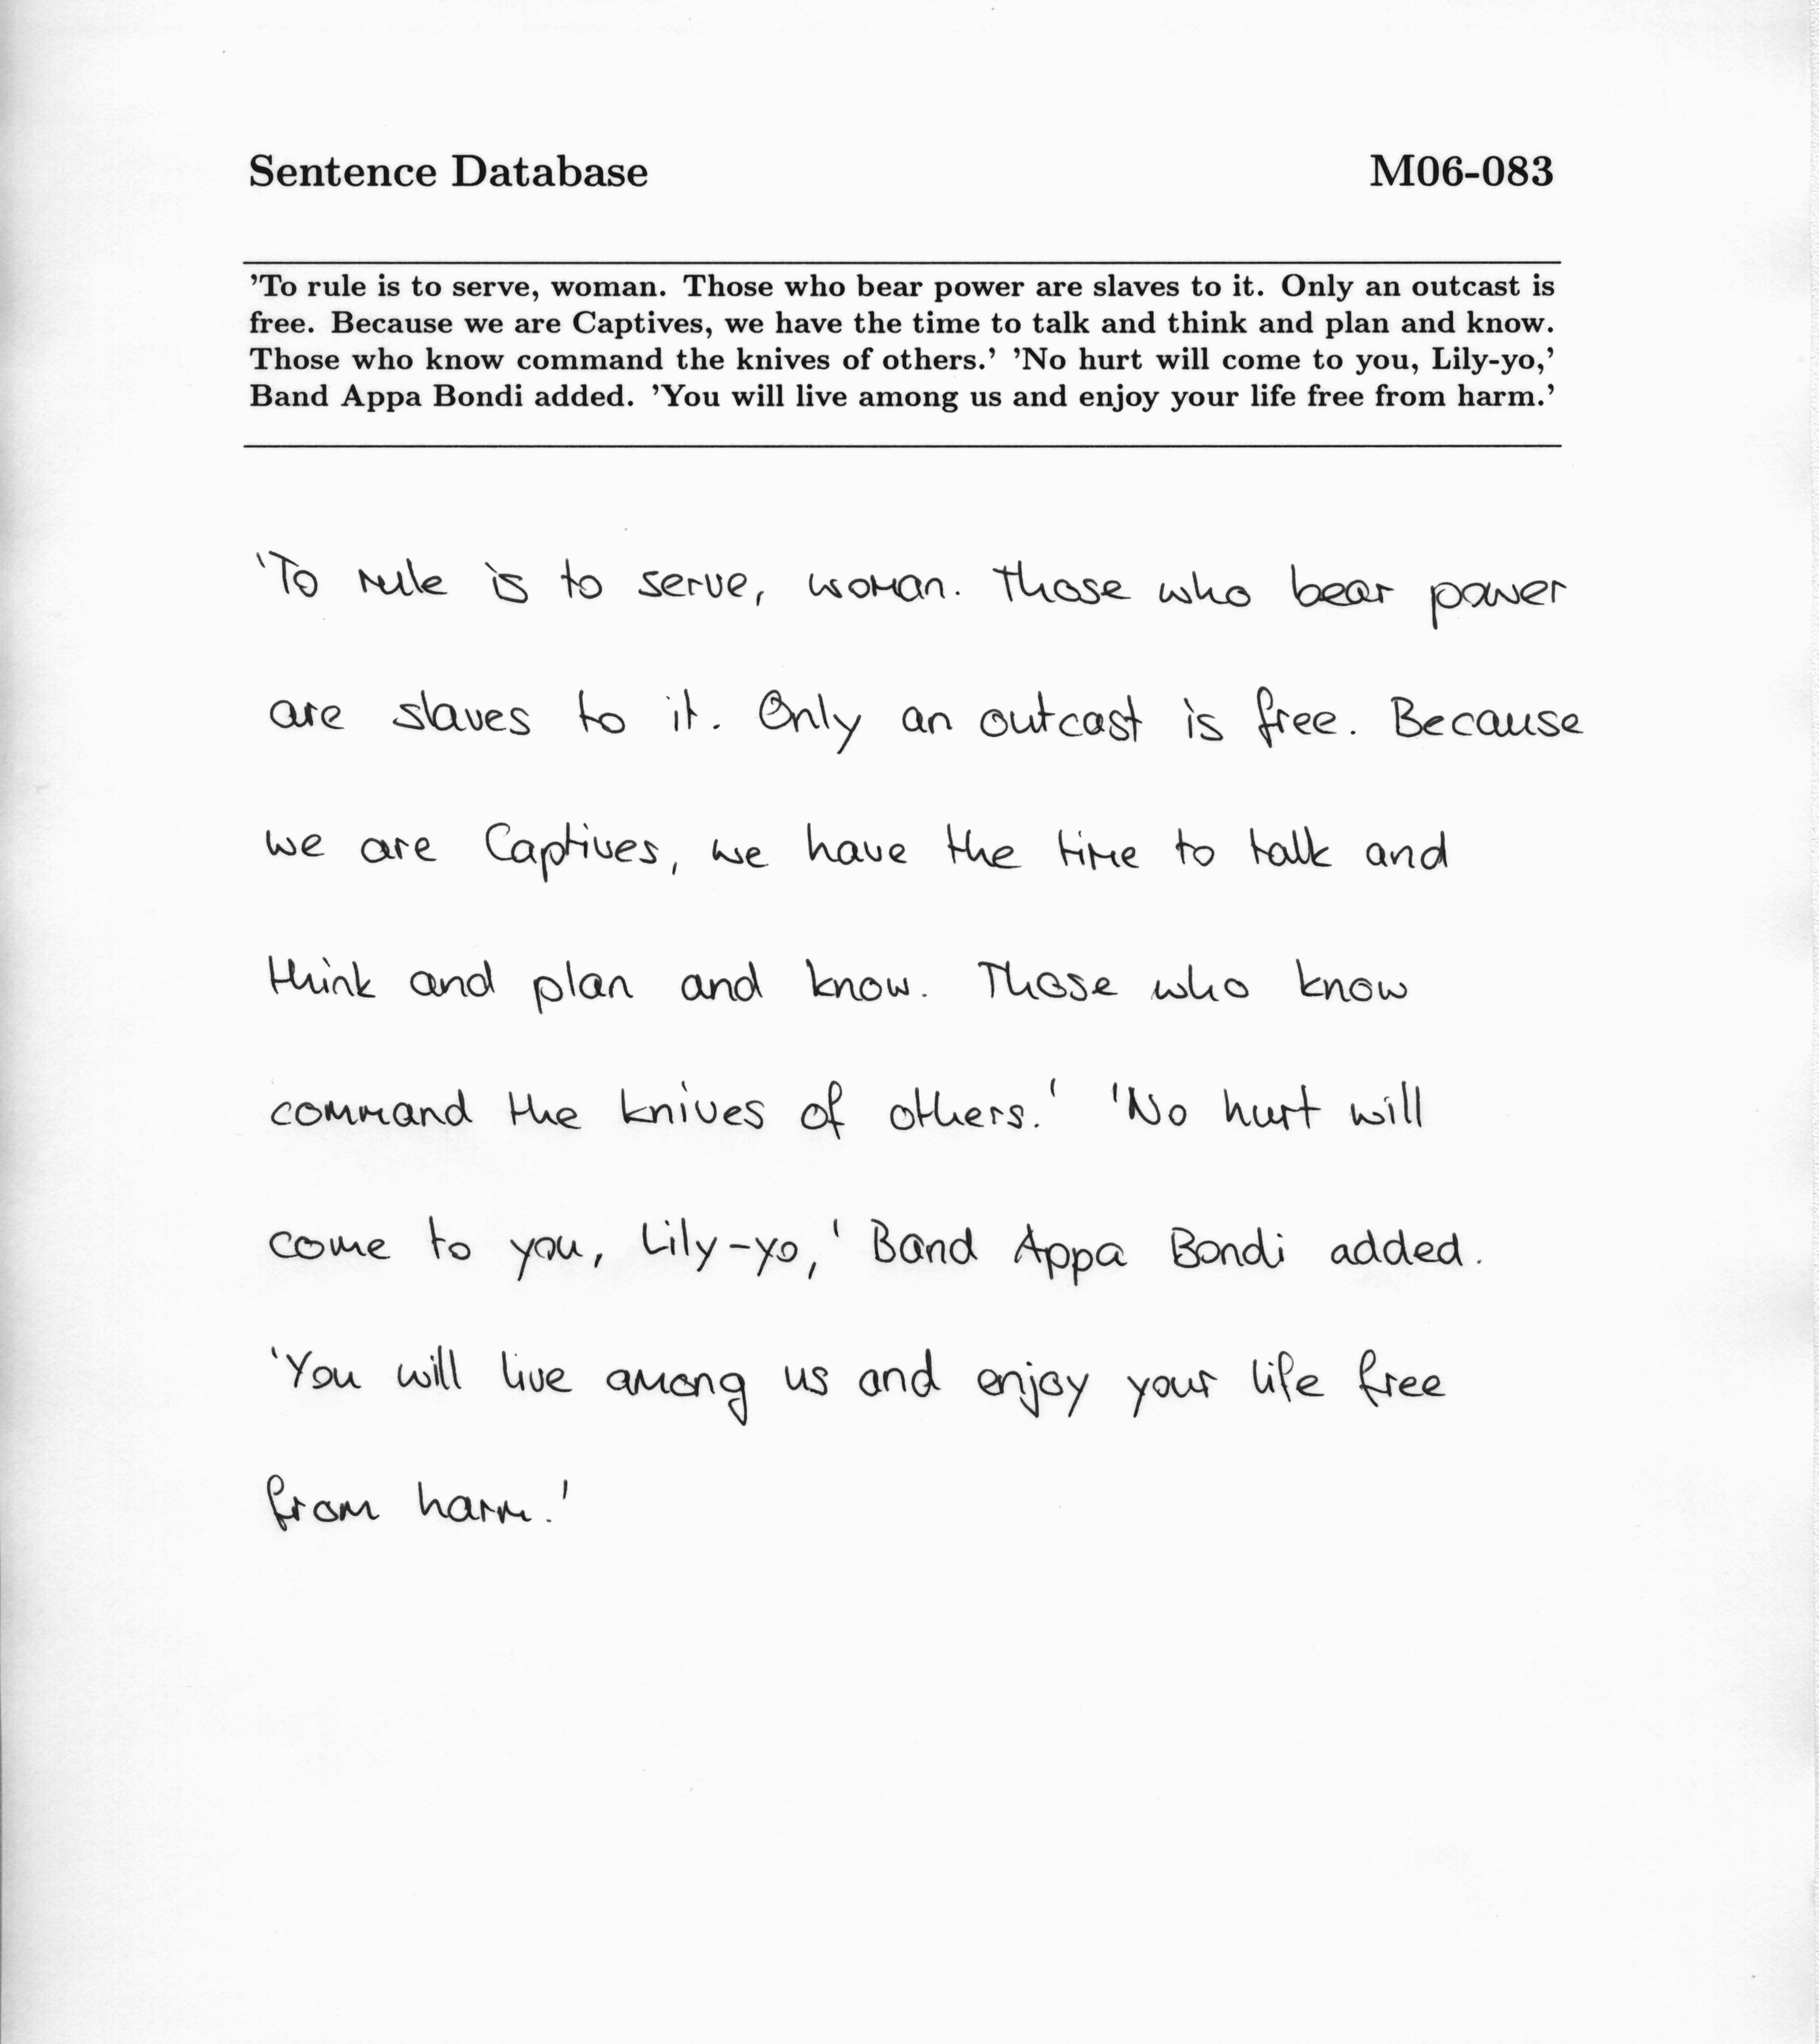 Sentence Database M06-083
'To rule is to serve, woman. Those who bear power are slaves to it. Only an outcast is
free. Because we are Captives, we have the time to talk and think and plan and know.
Those who know command the knives of others.' 'No hurt will come to you, Lily-yo,'
Band Appa Bondi added. 'You will live among us and enjoy your life free from harm.'
'To rule is to serve, woman. Those who bear power
are slaves to it. Only an outcast is free. Because
we are Captives, we have the time to talk and
think and plan and know. Those who know
command the knives of others.' 'No hurt will
come to you, Lily-yo,' Band Appa Bondi added.
'You will live among us and enjoy your life free
from harm.'